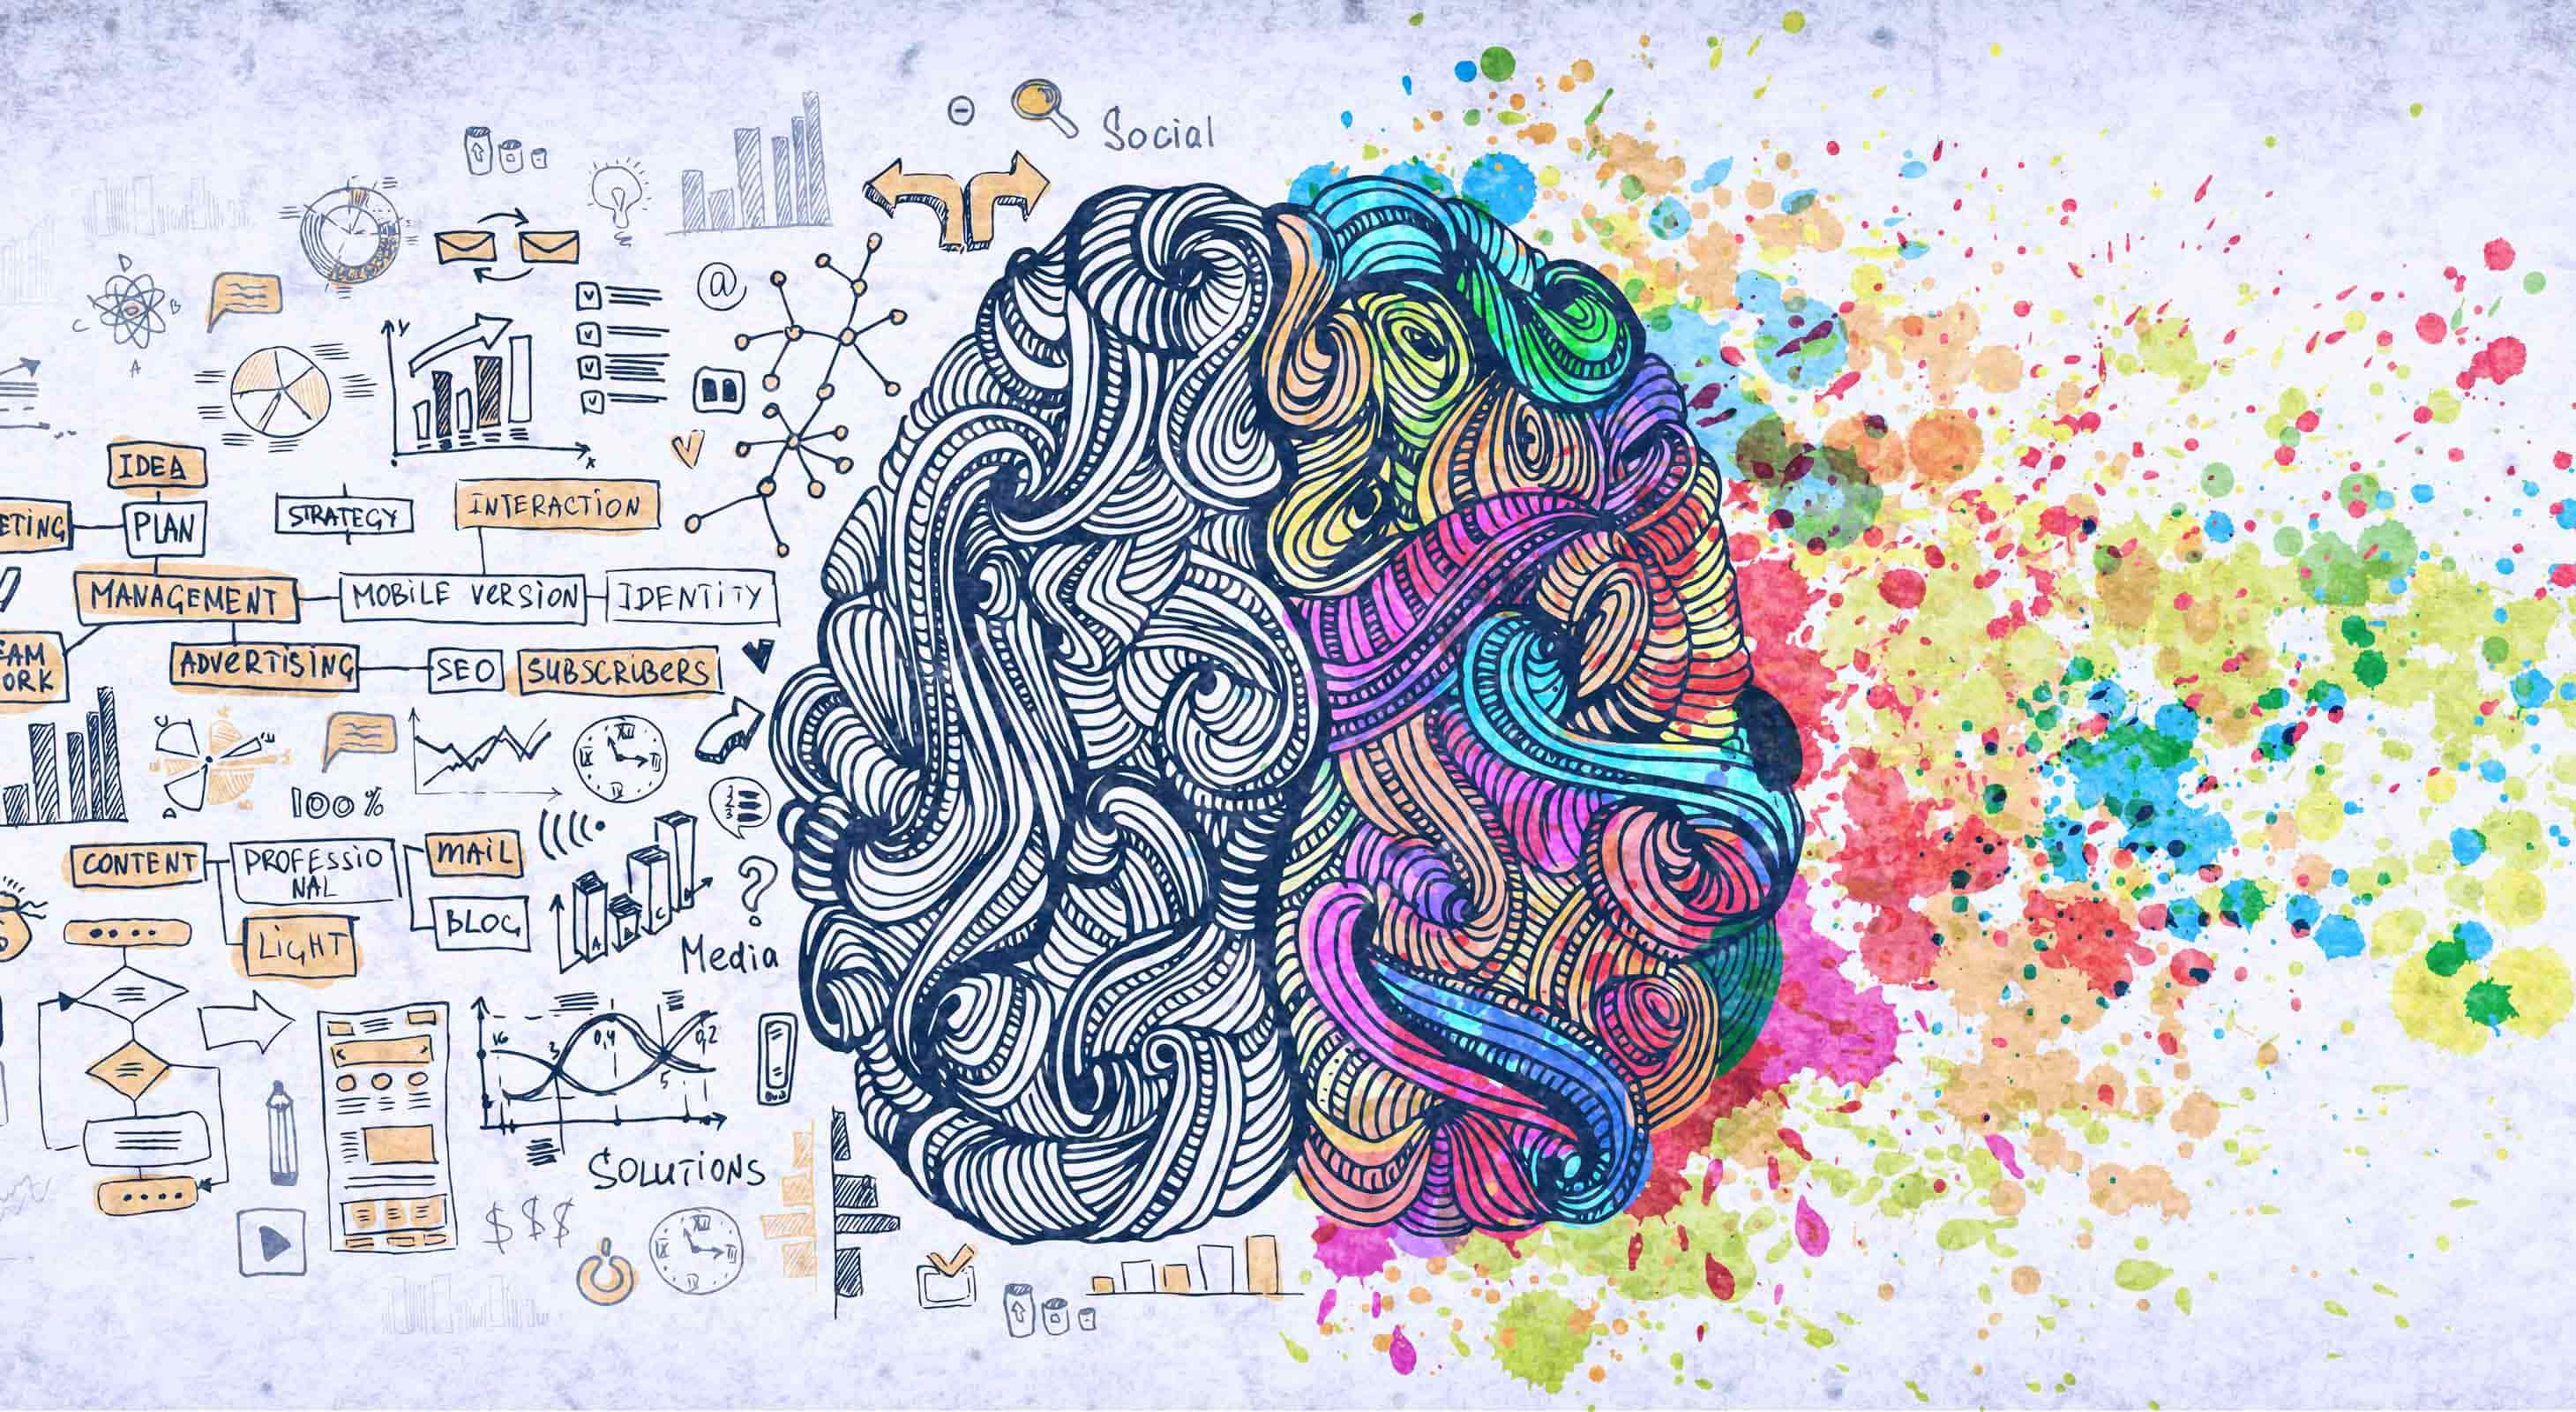 Social
D
C
B
A
@
Y
X
IDEA
ETING
PLAN
STRATEGY
INTERACTION
MANAGEMENT
MOBILE VERSION
IDENTITY
EAM
ORK
ADVERTISING
SEO
SUBSCRIBERS
100%
CONTENT
PROFESSIO
NAL
MAIL
BLOG
LIGHT
?
Media
16
3
0,4
5
0,2
SOLUTIONS
$$$